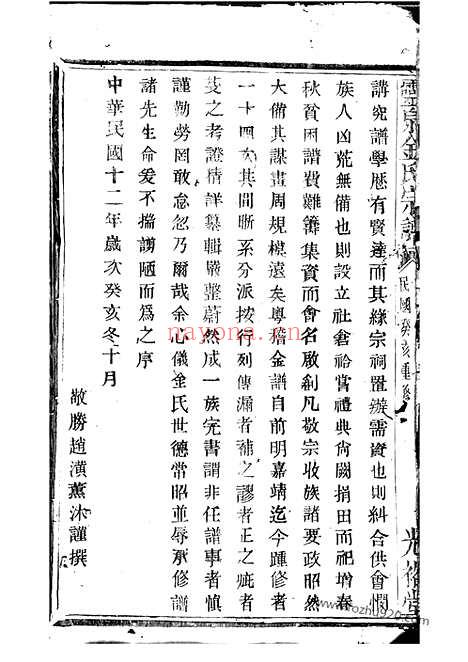 講究譜學歷有賢達而其綠宗祠置辦需資也則糾合供會憫
族人凶荒無備也則設立社倉祫嘗禮典尚闕捐田而祀增春
秋貧困譜費難籌集資而會名啟創凡敬宗收族諸要政昭然
大備其謀畫周規模遠矣粵稽金譜自前明嘉靖迄今踵修者
一十四次其間晰系分派按行列傳漏者補之謬者正之疵者
芟之考證精詳纂輯嚴整蔚然成一族完書謂非任譜事者慎
謹勤勞罔敢怠忽乃爾哉余心儀金氏世德常昭並辱承修譜
諸先生命爰不揣謭陋而為之序
中華民國十二年歲次癸亥冬十月
敬勝趙漢薰沐謹撰
金氏宗譜
民國癸亥重修
光裕堂
www.zohu2023.com